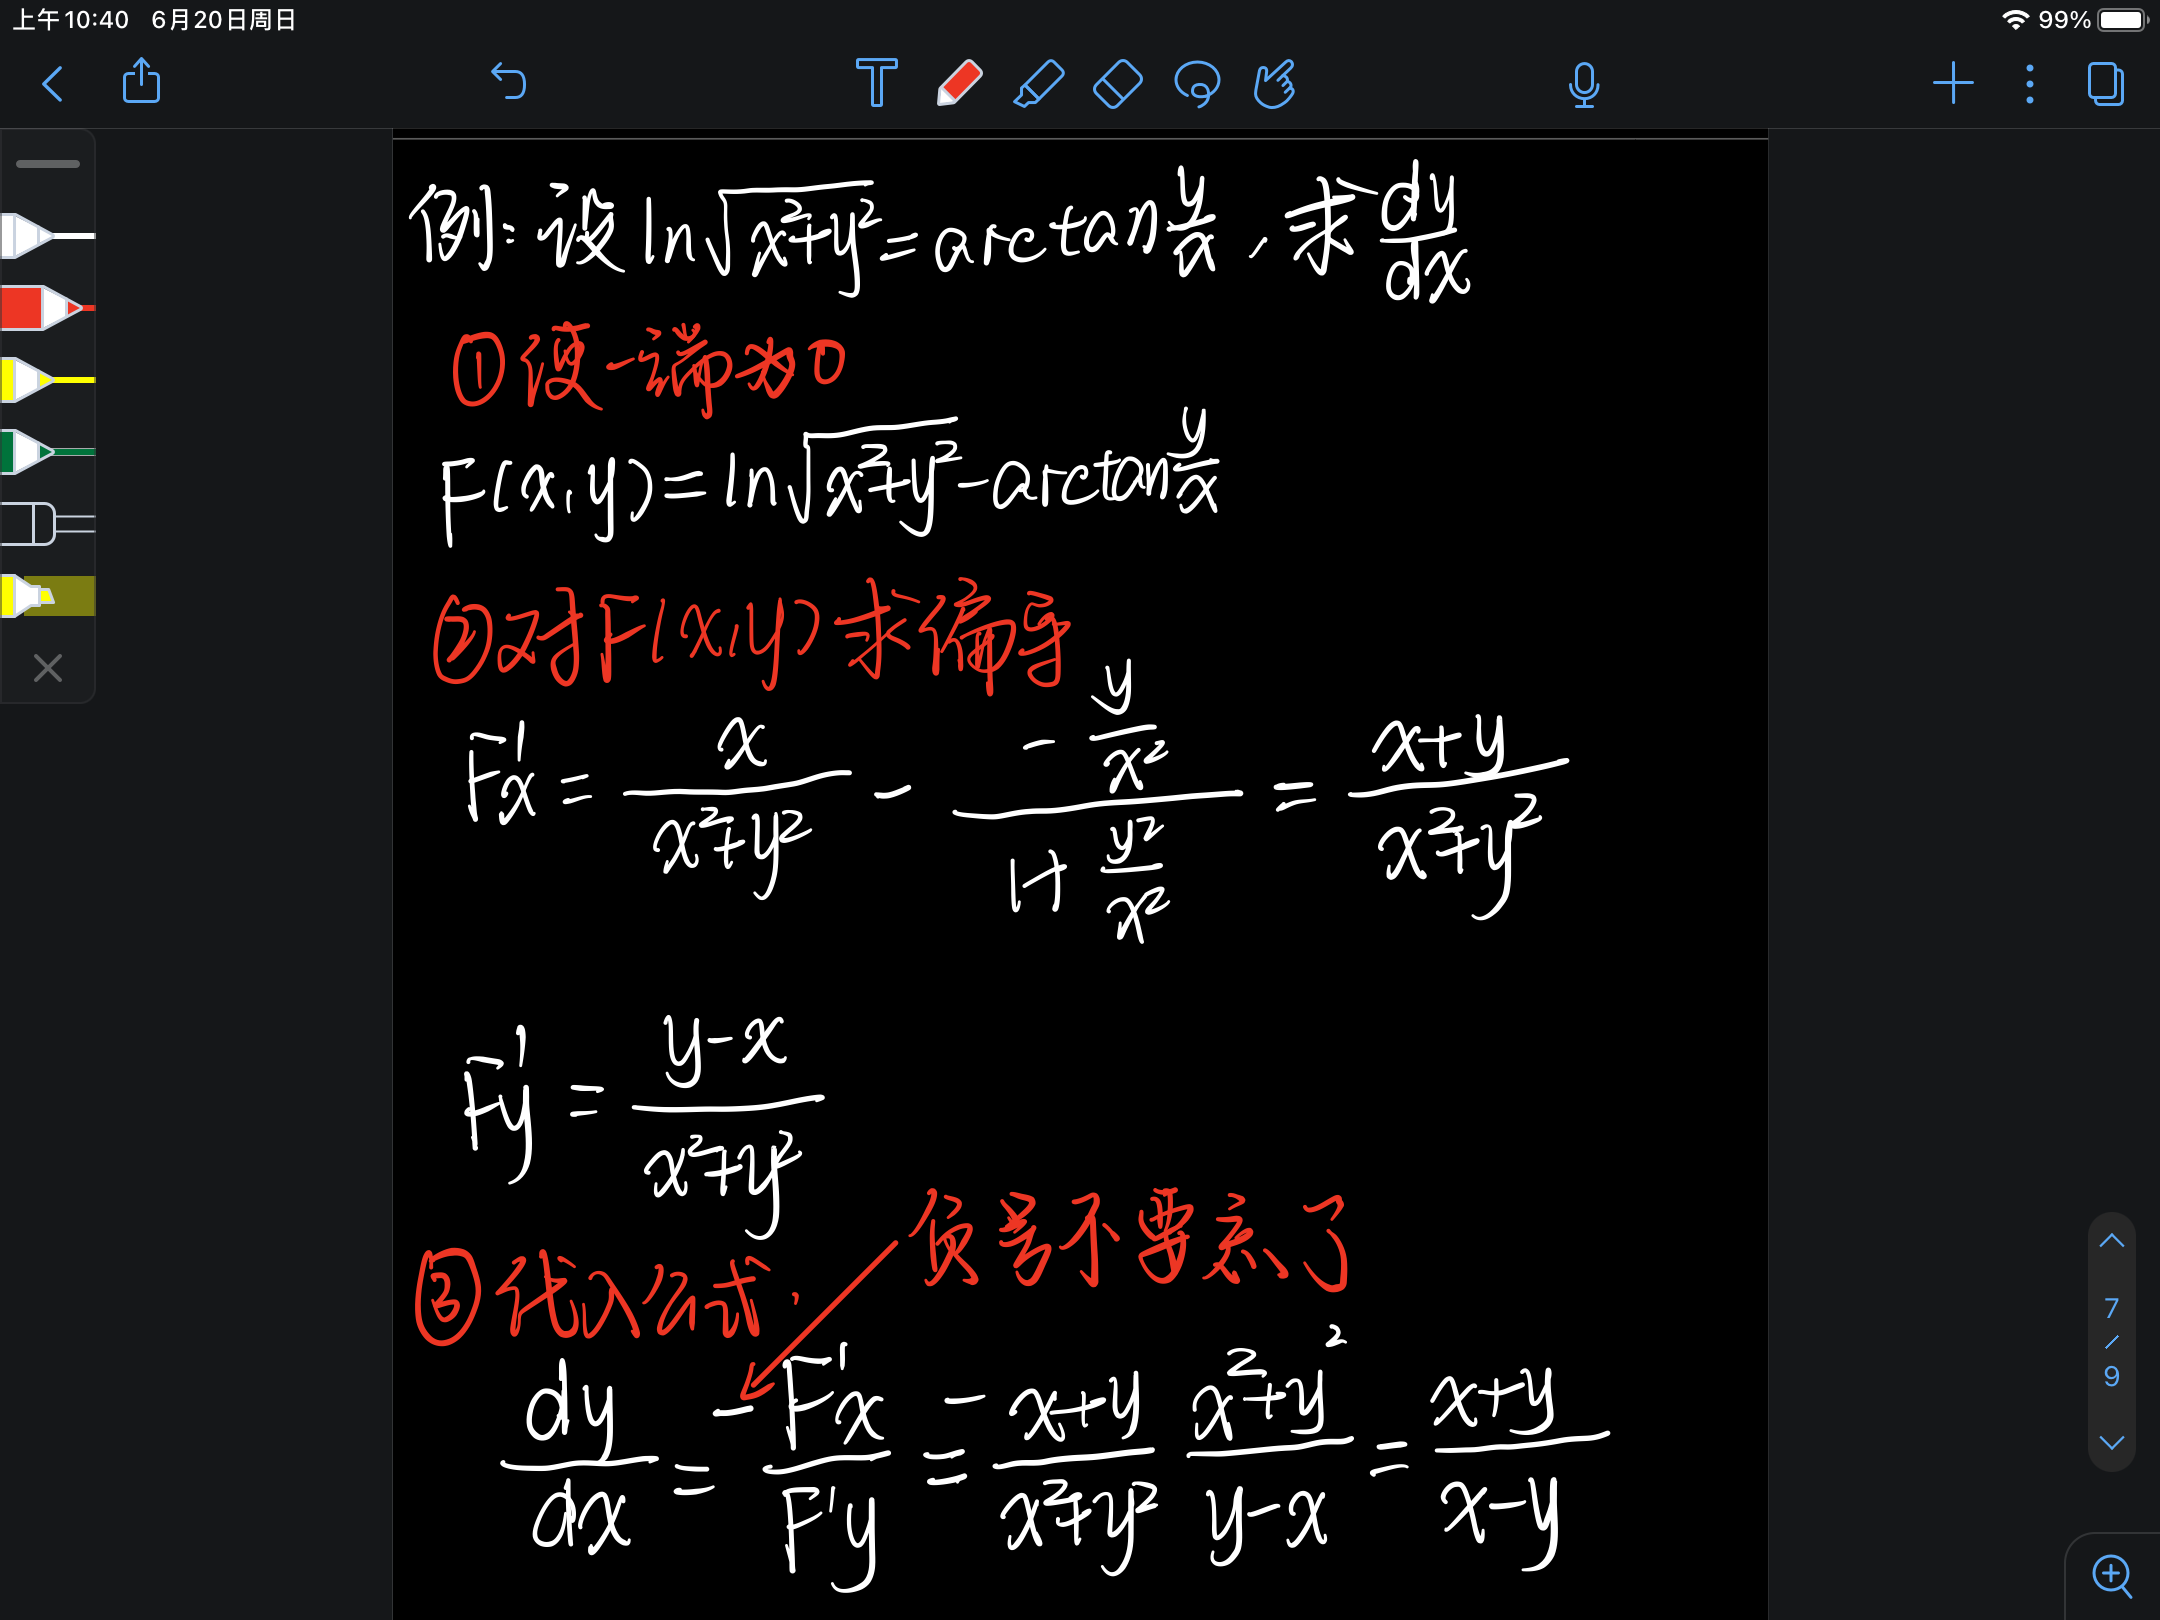 上午10:40 6月20日周日 99%
例:设 ln√(x²+y²) = arctan y/x, 求 dy/dx
①使一端为0
F(x,y) = ln√(x²+y²) - arctan y/x
②对F(x,y)求偏导
F'x = x/(x²+y²) - (-y/x²)/(1+y²/x²) = (x+y)/(x²+y²)
F'y = (y-x)/(x²+y²)
负号不要忘了
③代入公式,
dy/dx = -F'x/F'y = -(x+y)/(x²+y²) (x²+y²)/(y-x) = (x+y)/(x-y)
7/9